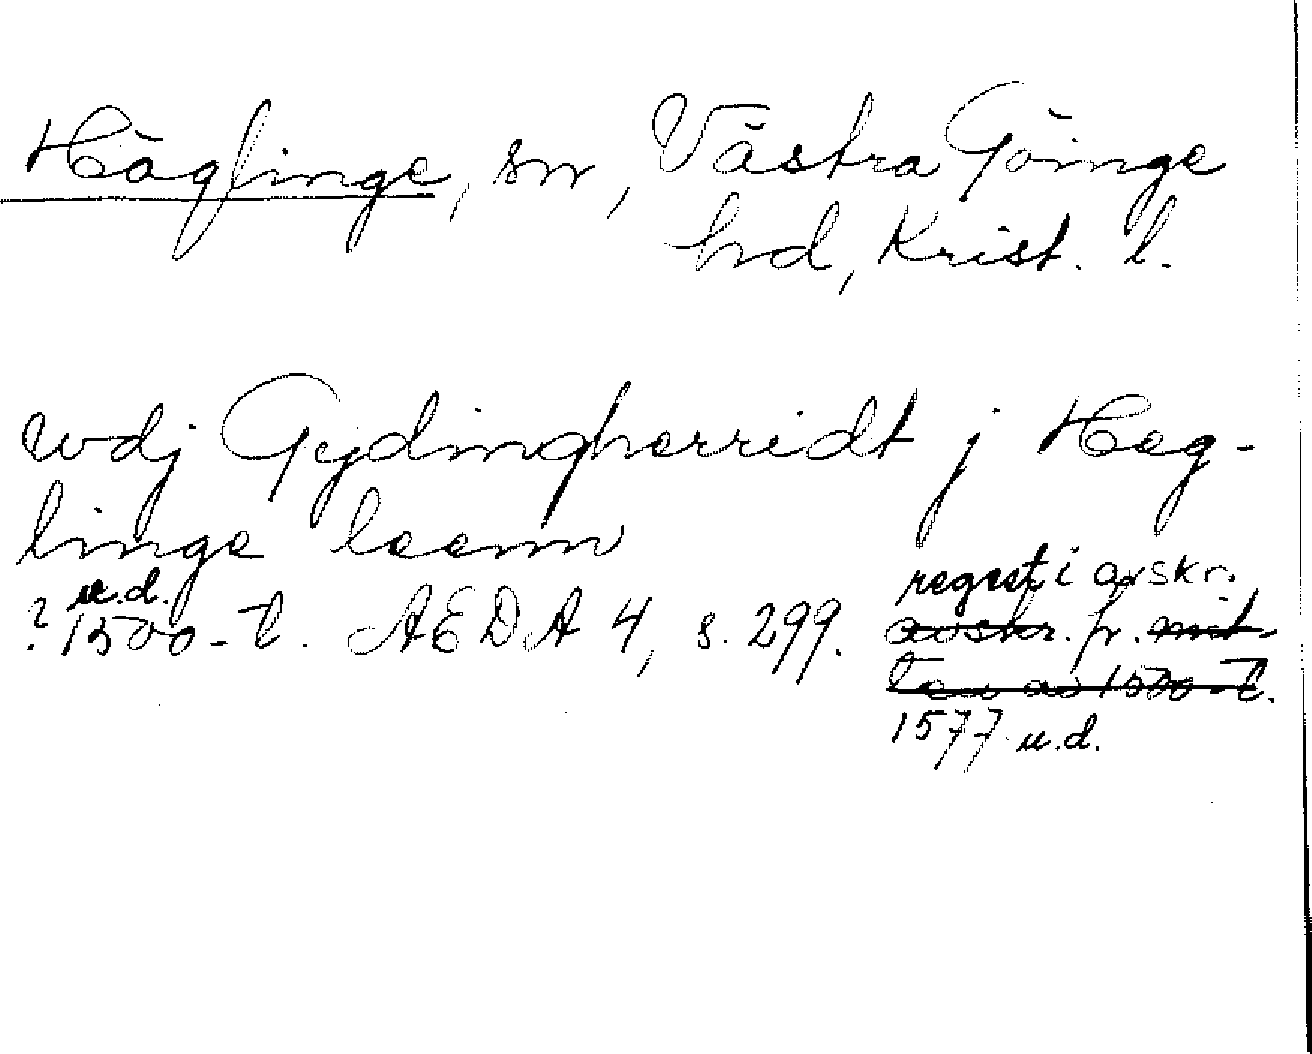 Häglinge, sn, Västra Göinge
hd, Krist. l.
wdj Gydingherridt j Heg-
linge leenn
u.d.
? 1500-t. AEDA 4, s. 299.
regest i avskr.
avskr. fr. mit-
ten av 1500-t.
1577 u.d.